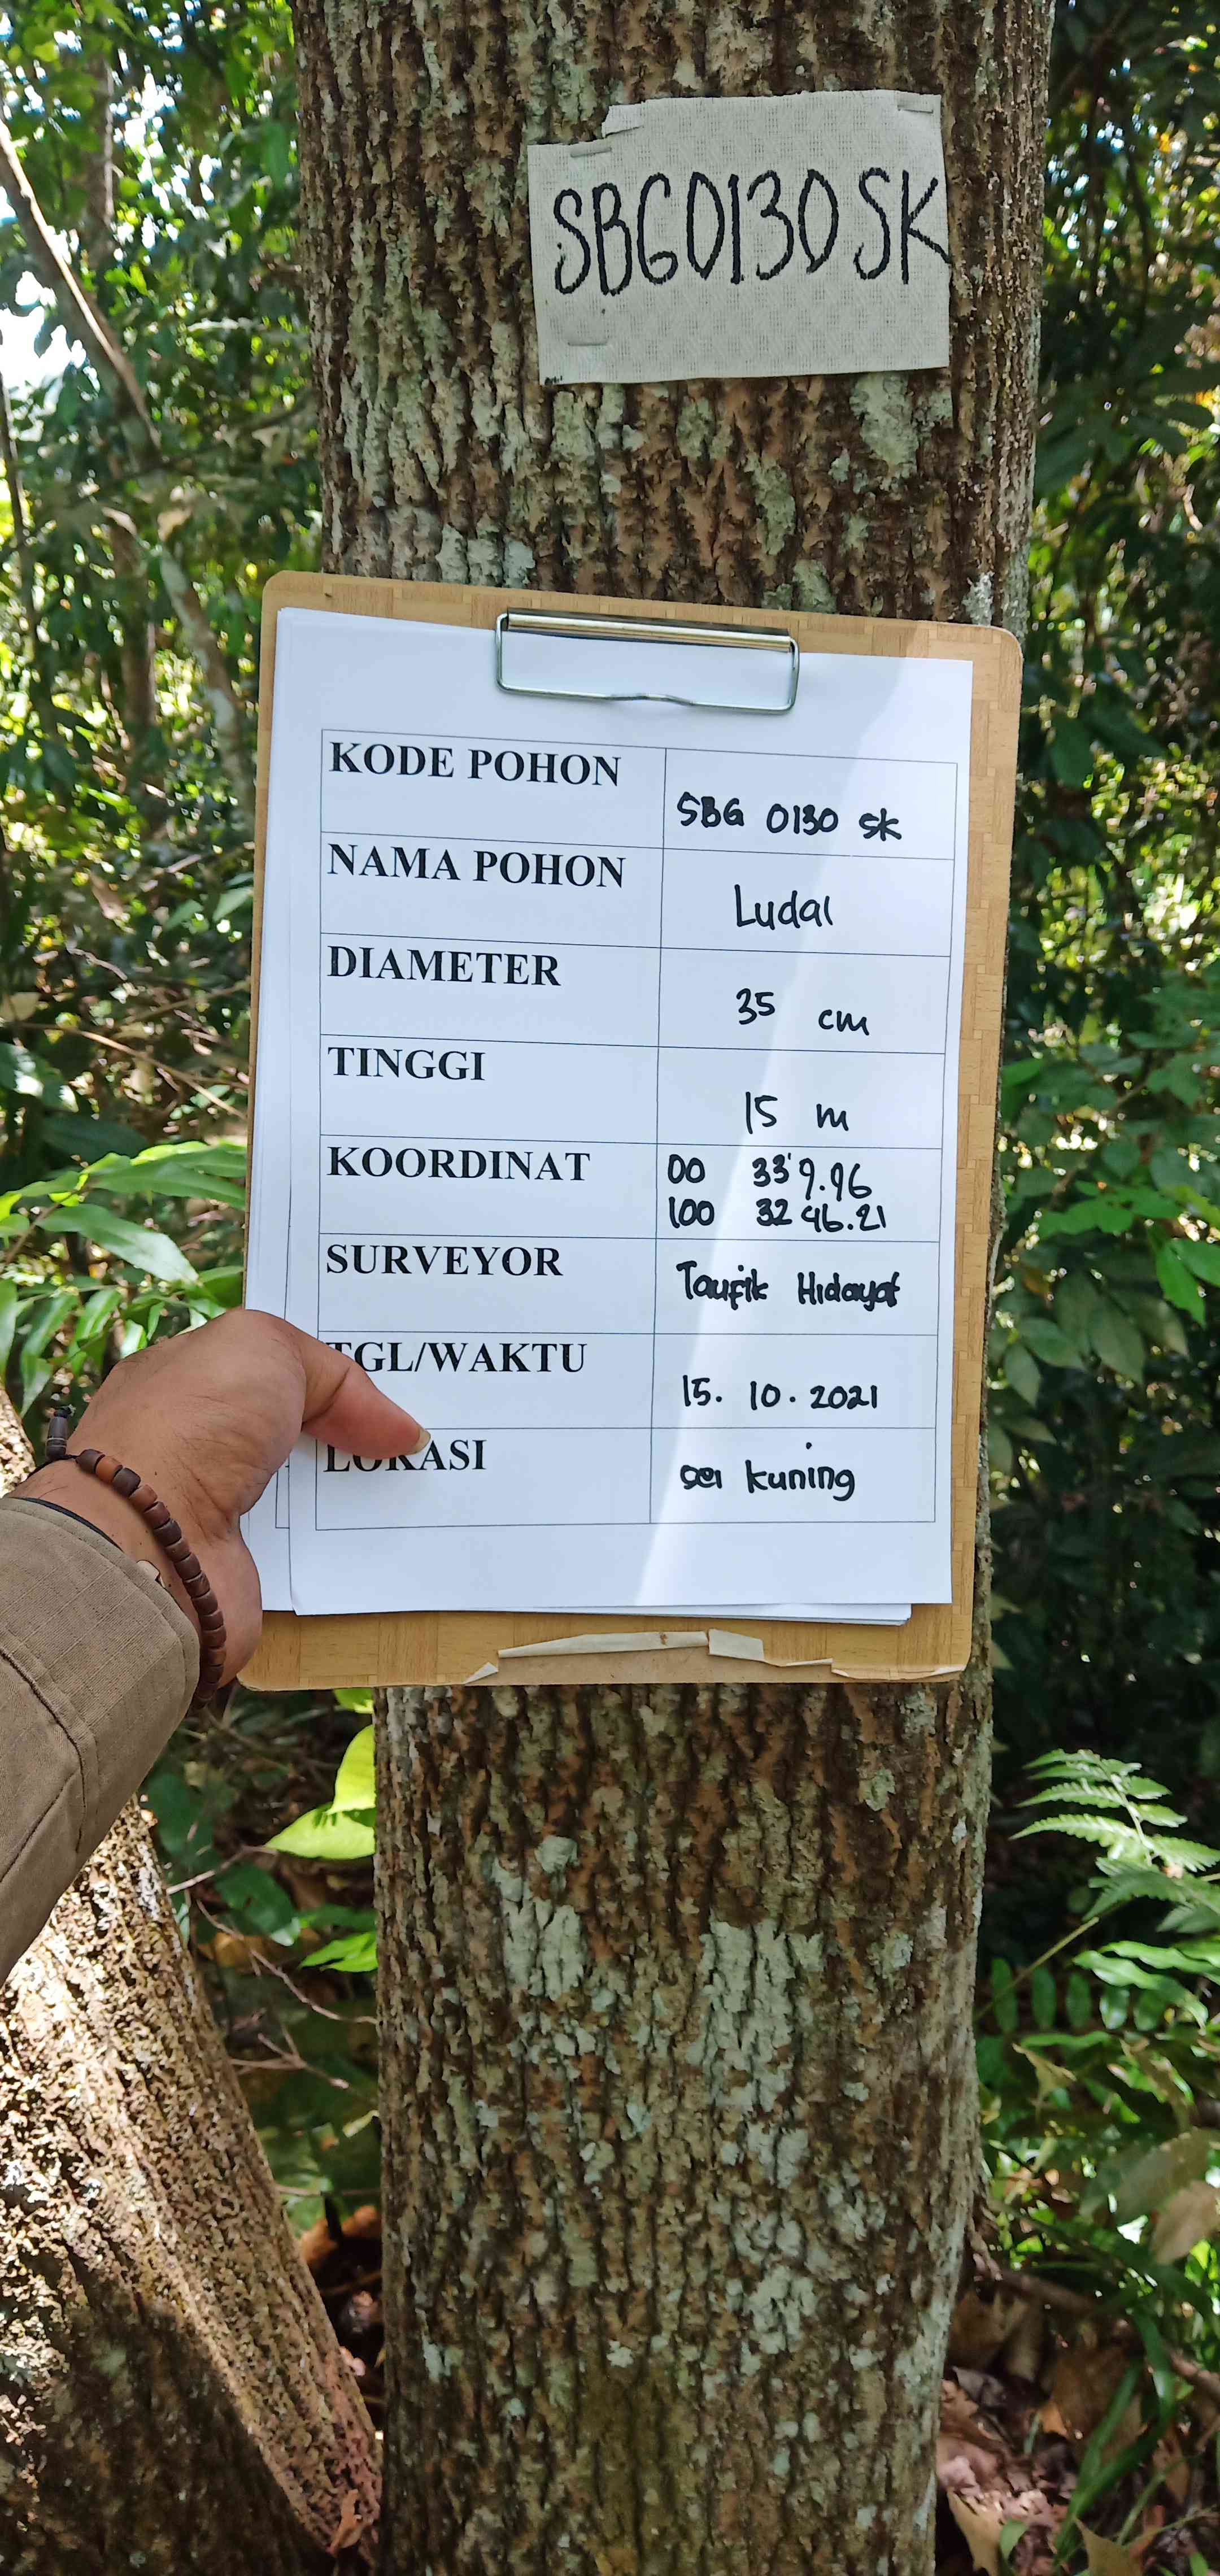 SBG0130SK
KODE POHON
SBG 0130 SK
NAMA POHON
Ludai
DIAMETER
35 cm
TINGGI
15 m
KOORDINAT
00 33'9.96
100 32 46.21
SURVEYOR
Taufik Hidayat
TGL/WAKTU
15. 10. 2021
LOKASI
sei kuning